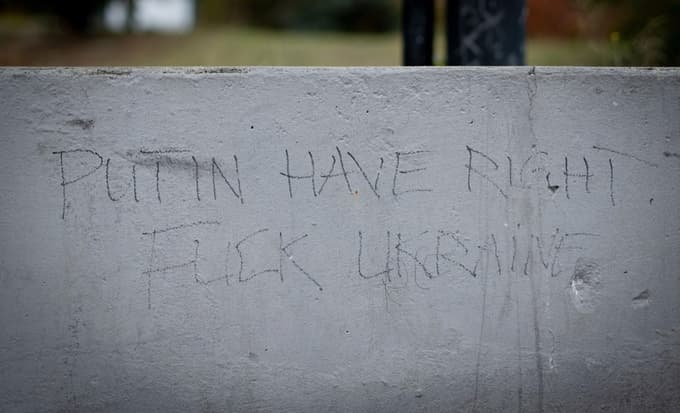 PUTIN HAVE RIGHT.
FUCK UKRAINE